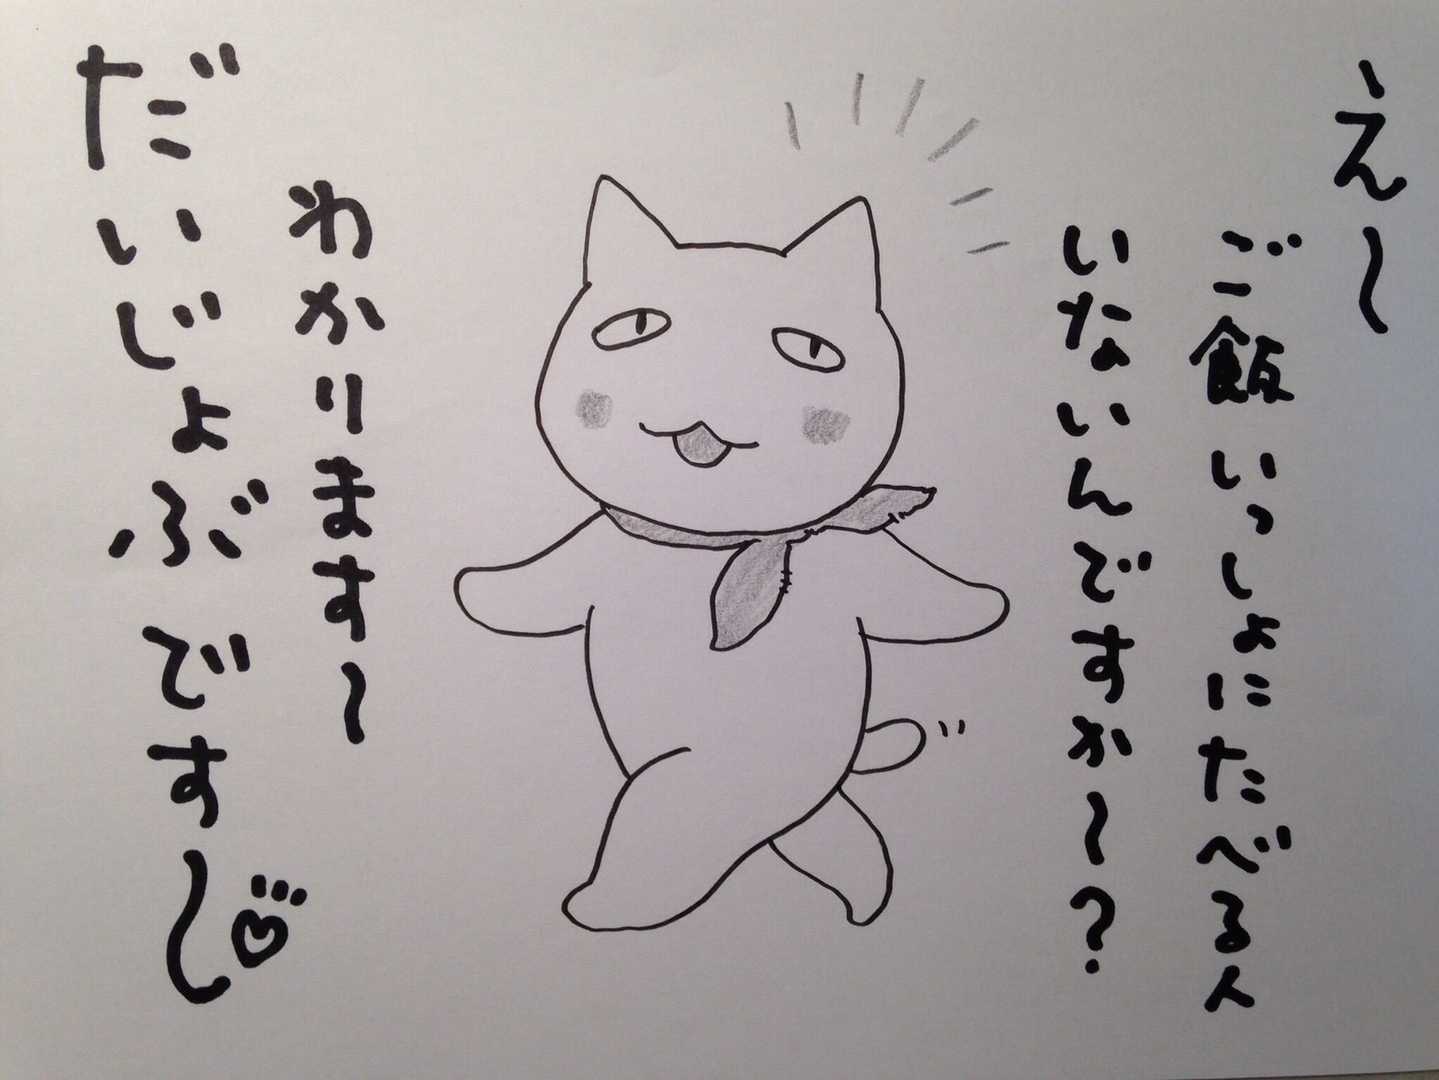 え〜
ご飯いっしょにたべる人
いないんですか〜?
わかります〜
だいじょぶです〜♡